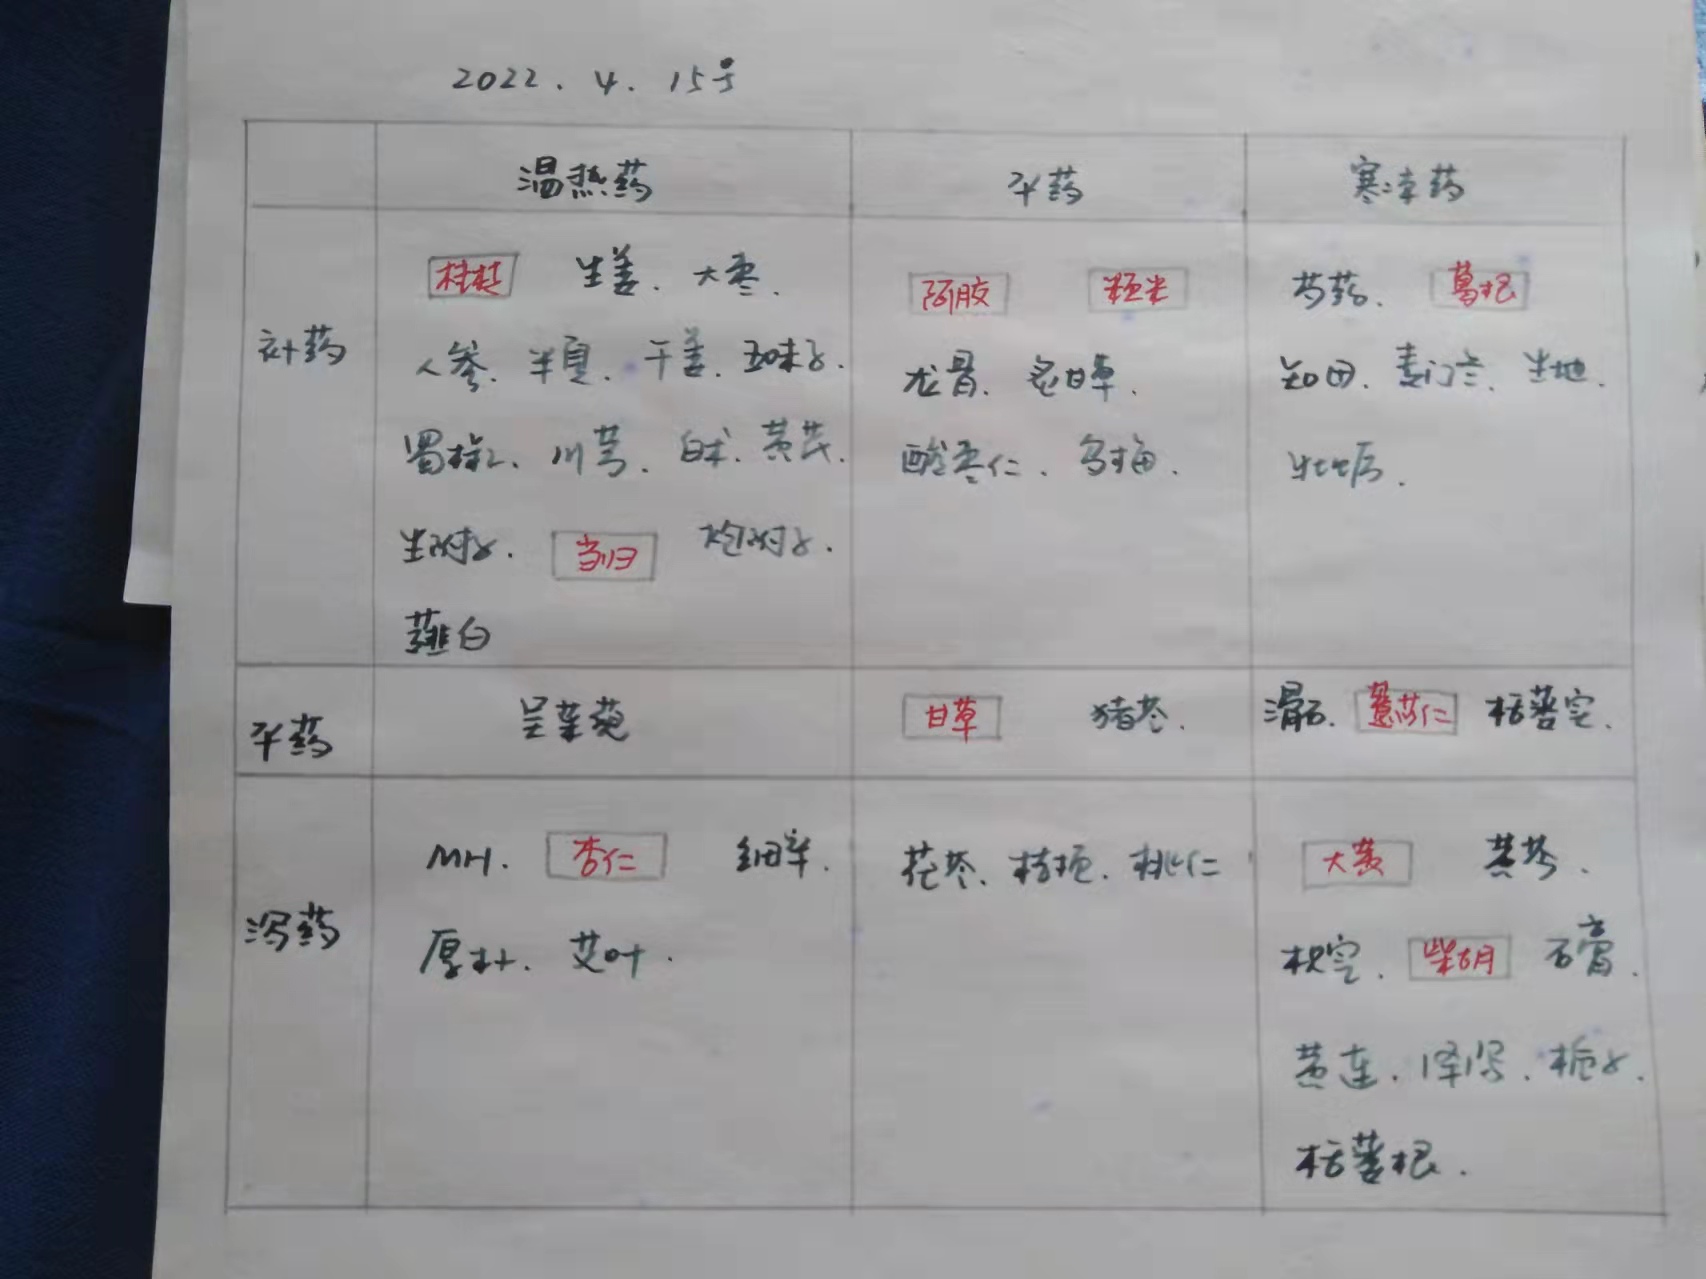 2022.4.15号
温热药 平药 寒凉药
补药
桂枝 生姜、大枣、
人参、半夏、干姜、五味子、
蜀椒、川芎、白术、黄芪、
生附子、当归 炮附子、
薤白
阿胶 粳米
龙骨、炙甘草、
酸枣仁、乌梅、
芍药、葛根
知母、麦门冬、生地、
牡蛎、
平药 吴茱萸 甘草 猪苓、 滑石、薏苡仁 栝蒌实、
泻药
MH、杏仁 细辛、
厚朴、艾叶、
茯苓、桔梗、桃仁
大黄 黄芩、
枳实、柴胡 石膏、
黄连、泽泻、栀子、
栝蒌根、